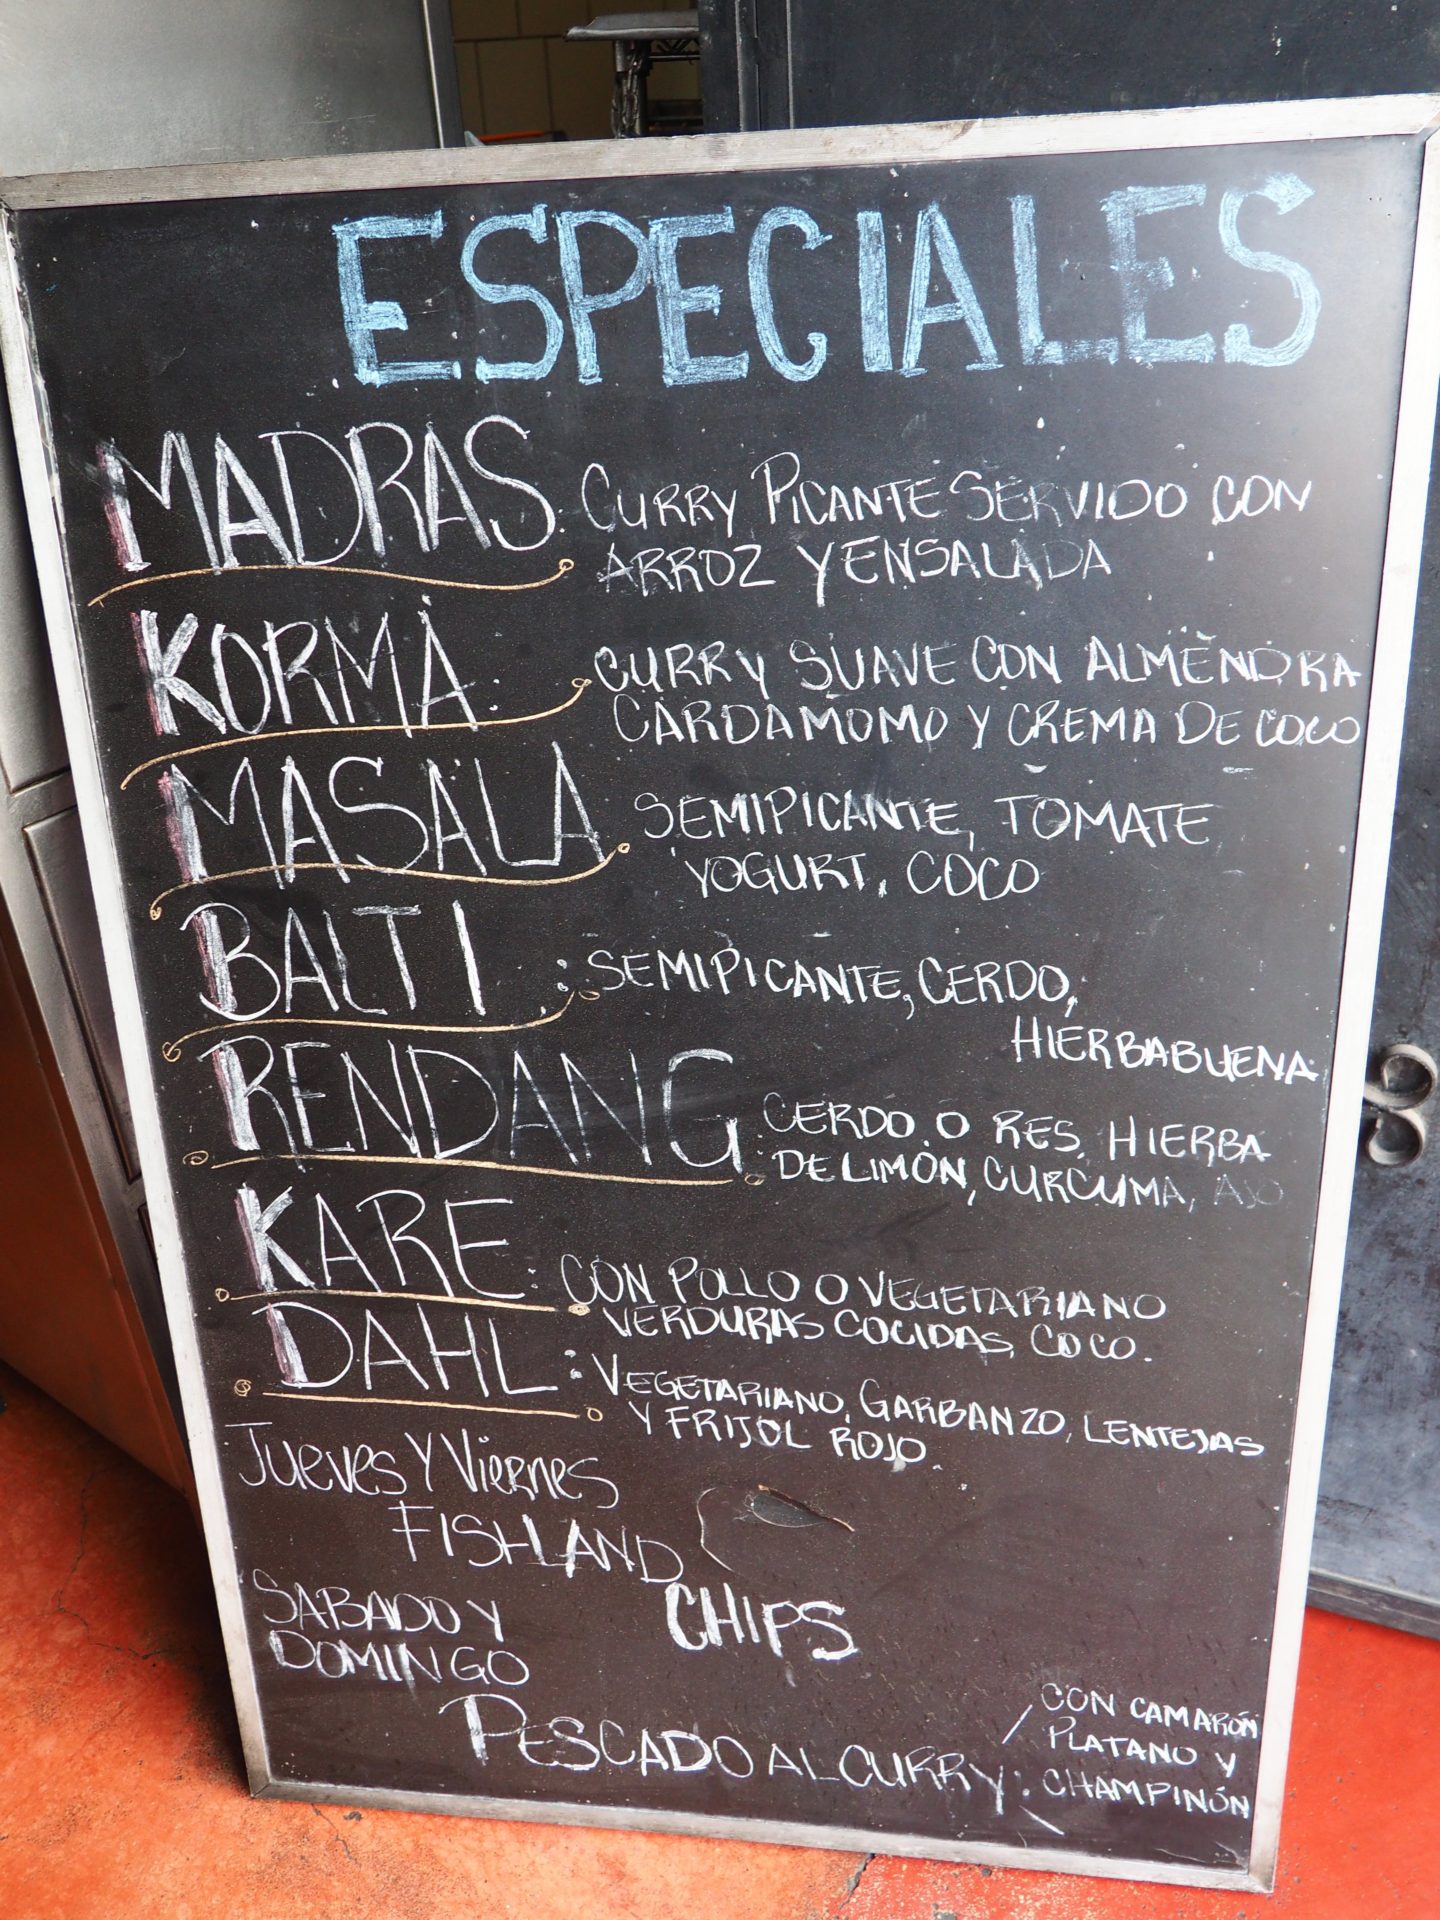 ESPECIALES
MADRAS: CURRY PICANTE SERVIDO CON
ARROZ Y ENSALADA
KORMA: CURRY SUAVE CON ALMENDRA
CARDAMOMO Y CREMA DE COCO
MASALA SEMIPICANTE, TOMATE
YOGURT, COCO
BALTI : SEMIPICANTE, CERDO,
HIERBABUENA
RENDANG: CERDO O RES, HIERBA
DE LIMÓN, CURCUMA, AJO
KARE: CON POLLO O VEGETARIANO
VERDURAS COCIDAS, COCO.
DAHL: VEGETARIANO, GARBANZO, LENTEJAS
Y FRIJOL ROJO
JUEVES Y VIERNES
FISHLAND
CHIPS
SABADO Y
DOMINGO
PESCADO AL CURRY:
CON CAMARÓN
PLATANO Y
CHAMPIÑÓN